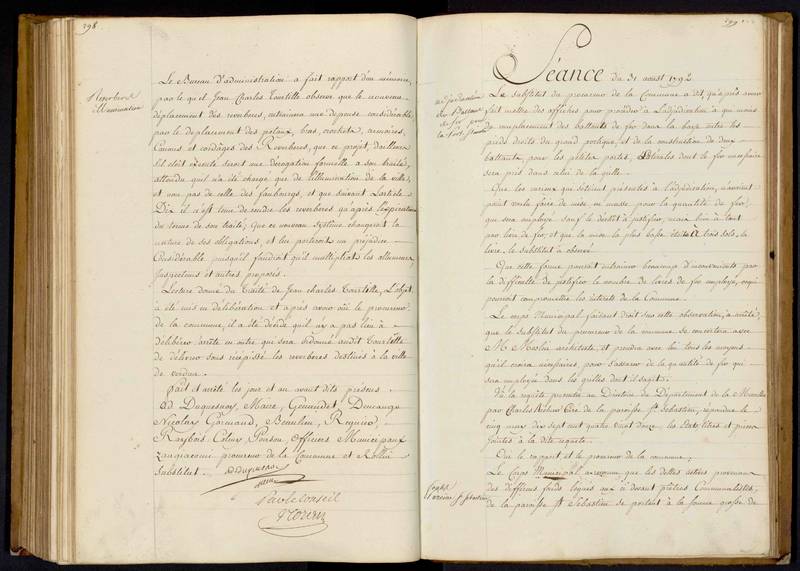 398
Reverberes
Illumination
Le Bureau d'administration a fait rapport d'un mémoire,
par lequel Jean Charles Tourtille observe que le nouveau
déplacement des reverberes, entrainera une depense considérable,
par le deplacement des poteaux, bras, crochets, armoires,
Canons et cordages des Reverberes, que ce projet, d'ailleurs
s'il étoit executé seroit une dérogation formelle a son traité,
attendu qu'il n'a été chargé que de l'illumination de la ville,
et non pas de celle des fauxbourgs, et que suivant l'article
Dix il n'est tenu de rendre les reverberes qu'après l'expiration
du terme de son traité; Que ce nouveau systême changeroit la
nature de ses obligations, et lui porteroit un préjudice
Considérable puisqu'il faudroit qu'il multipliat les allumeurs,
Inspecteurs et autres preposés.
Lecture donné du Traité de Jean charles Tourtille, L'objet
a été mis en délibération et après avoir oüi le procureur
de la commune, il a été décidé qu'il n'y a pas lieu à
délibérer arrête en outre que sera ordonné audit Tourtille
de délivrer sous récépissé les reverberes destinés à la ville
de verdun.
fait et arrêté les jour et an avant dits présens.
Duquesnoy, Maire, Genaudet,
Nicolas Germand, Beaulieu, Regnier,
Raybois, Colny Poirson, Officiers Municipaux
Zangiacomi procureur de la Commune et Rollin
Substitut.
Duquesnoy
maire
Par le Conseil
399
Séance du 31 aoust 1792
adjudication
des Battans
de fer pour
Le substitut du procureur de la Commune a dit, qu'après avoir
fait mettre des affiches pour procéder à l'adjudication à qui moins
du remplacement des battants de fer dans la baye entre les
pieds droits du grand portique, et de la construction de deux
battants, pour les petites portes, latérales dont le fer nécessaire
sera pris dans celui de la grille.
Que les ouvriers qui s'étoient présentés à l'adjudication, n'avoient
point voulu faire de mise en masse pour la quantité de fer,
qui sera employé sauf le droit à justifier, mais bien à tant
par livre de fer, et que la mise la plus basse étoit à trois sols, la
livre, le substitut a observé
Que cette forme pouvoit entrainer beaucoup d'inconvénients par
la difficulté de justifier le nombre de livres de fer employé, ce qui
pouvoit compromettre les interets de la Commune.
Le corps Municipal faisant droit sur cette observation, a arrêté,
que le substitut du procureur de la commune se concertera avec
M. Maslin architecte, et prendra avec lui tous les moyens
qu'il croira nécessaires pour s'assurer de la quantité de fer qui
sera employée dans les grilles dont il s'agit.
Vu la requête presentée au Directoire du Département de la Meurthe
par Charles Curé de la paroisse St Sébastien, repondue le
cinq mars dix sept cent quatre vingt douze, les Etats, titres et pieces
jointes à la dite requete.
Oui le rapport et le procureur de la commune,
Corps
St Sébastien
Le Corps Municipal a reconnu que les dettes actives provenans
des différens fonds legués aux ci devant prêtres Communalistes,
de la paroisse St Sébastien se portent à la somme grosse de